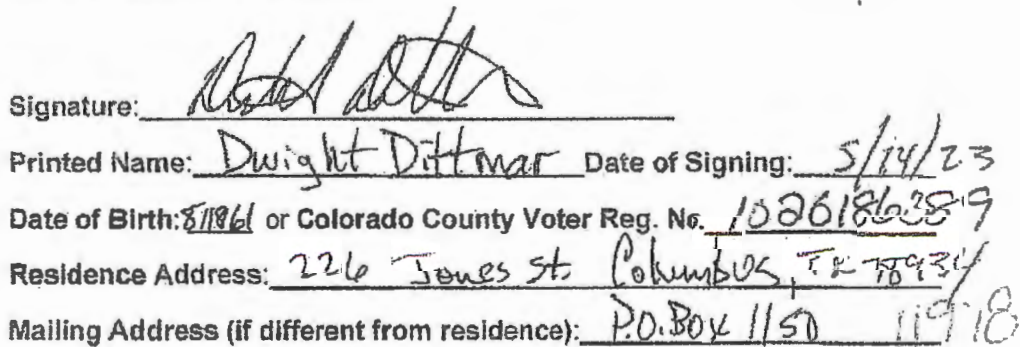 Signature:
Printed Name: Dwight Dittmar Date of Signing: 5/14/23
Date of Birth: or Colorado County Voter Reg. No.
Residence Address: 226 Jones St. Columbus, TX 78934
Mailing Address (if different from residence): P.O. Box 1150